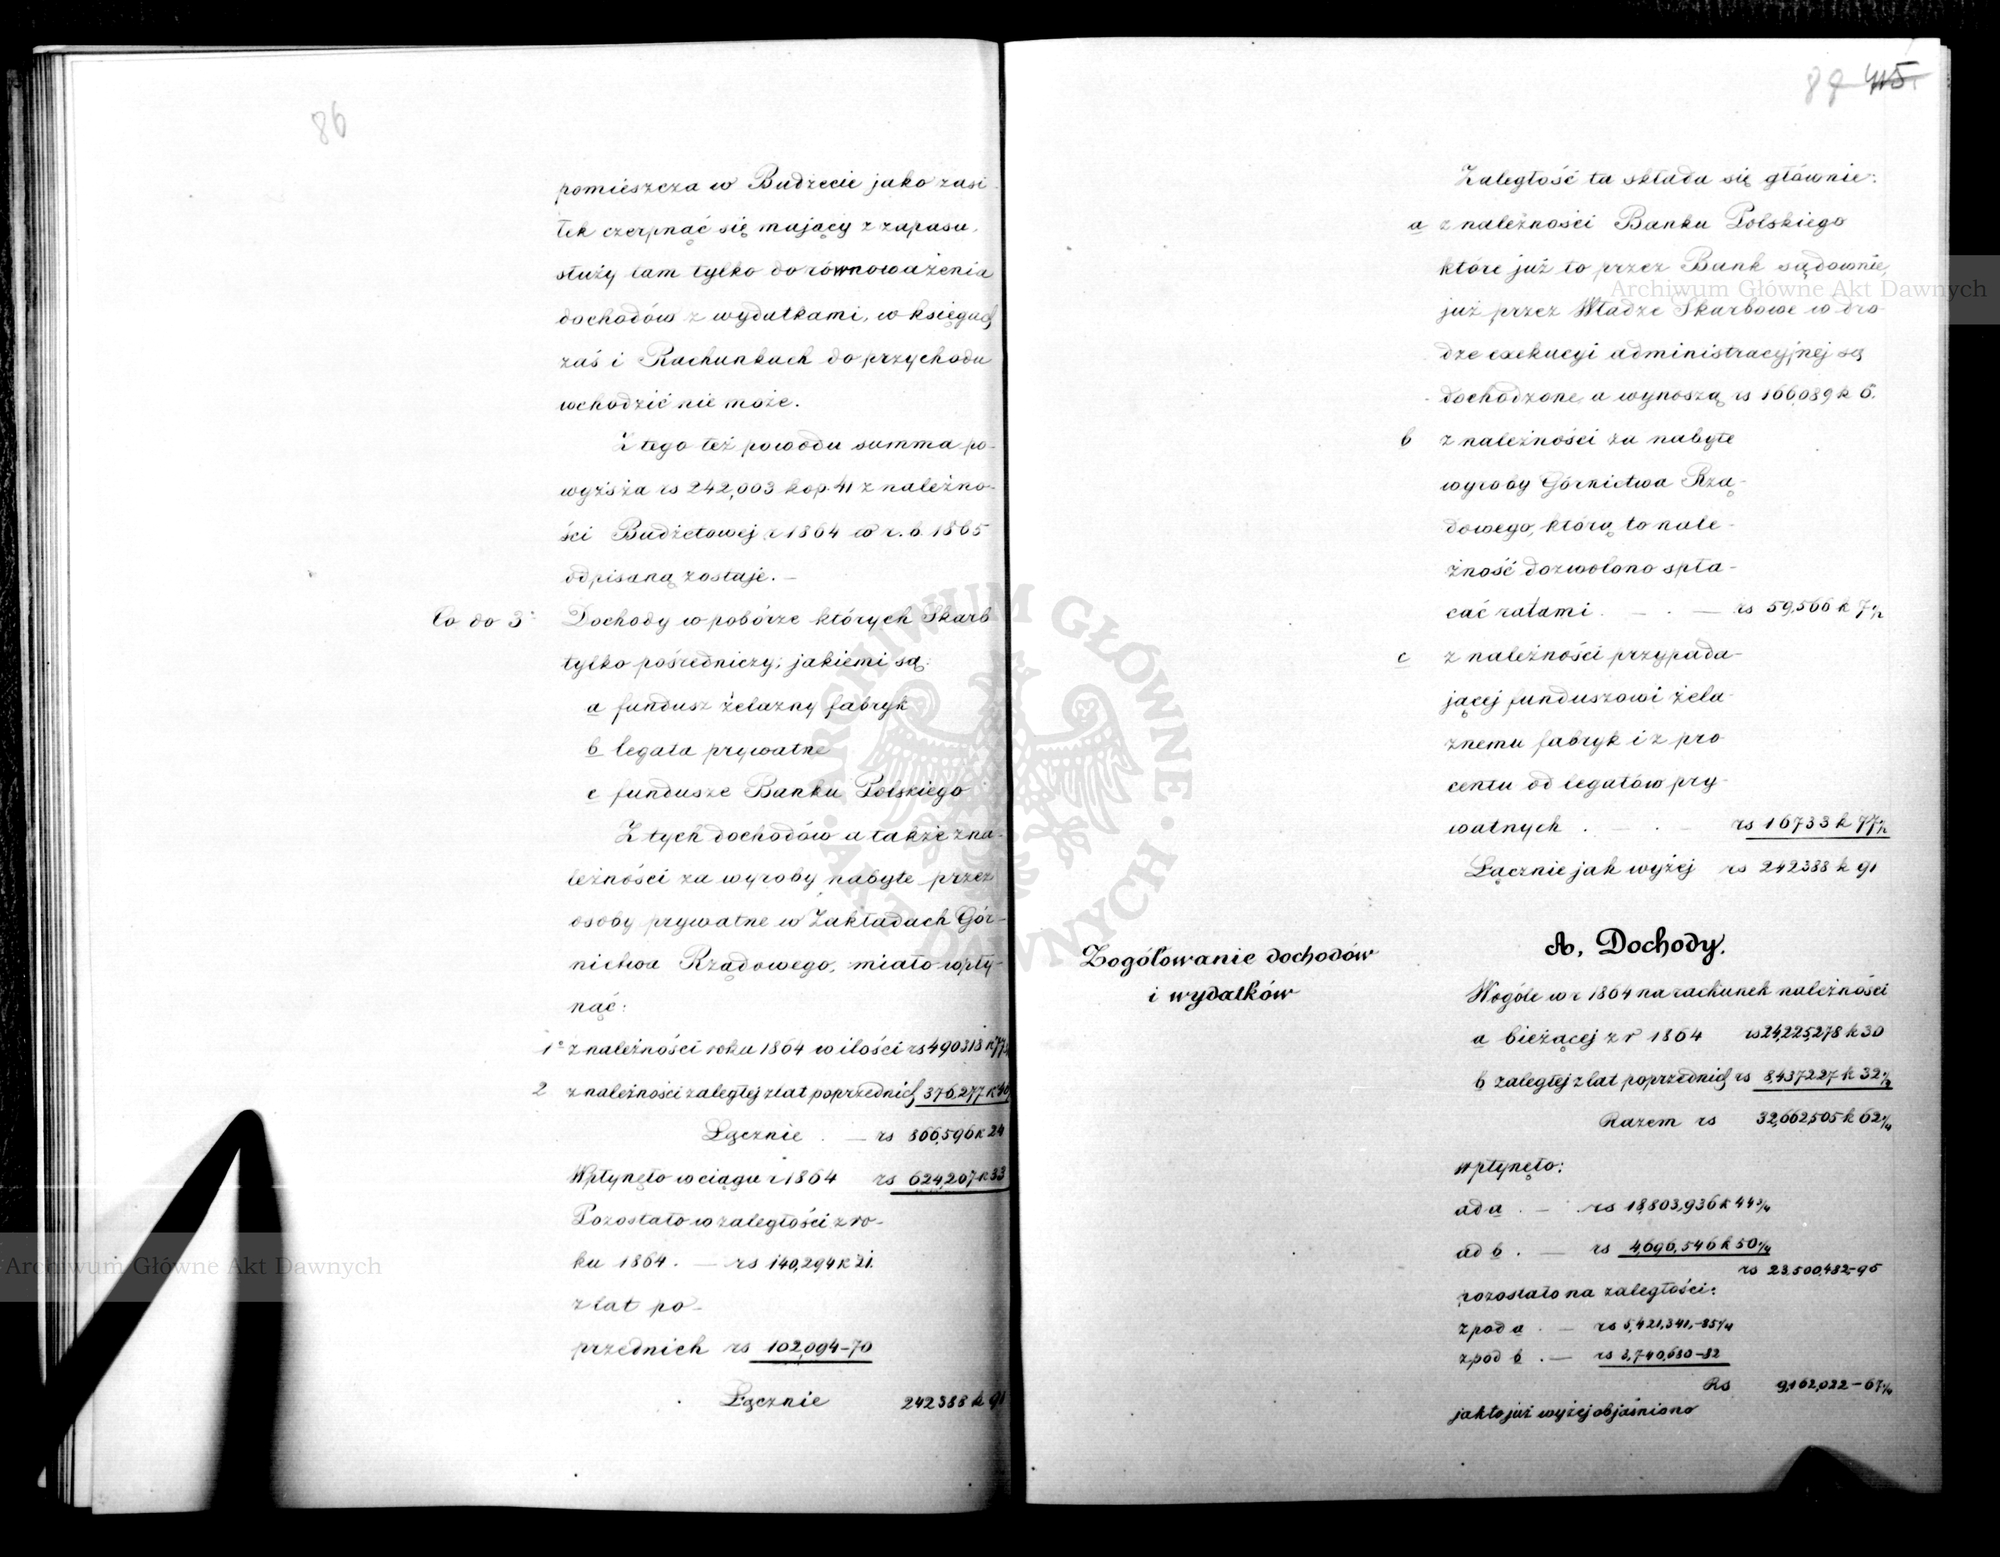 86
pomieszcza w Budżecie jako zasi-
łek czerpnąć się mający z zapasu,
służy tam tylko do równoważenia
dochodów z wydatkami, w księgach
zaś i Rachunkach do przychodu
wchodzić nie może.
Z tego też powodu summa po-
wyższa rs 242,003 kop. 41 z należno-
ści Budżetowej r 1864 w r. b. 1865
odpisaną zostaje. —
Co do 3º Dochody w poborze których Skarb
tylko pośredniczy; jakiemi są:
a fundusz żelazny fabryk
b legata prywatne
c fundusze Banku Polskiego
Z tych dochodów a także zna-
leżności za wyroby nabyte przez
osoby prywatne w Zakładach Gór-
nictwa Rządowego, miało wpły-
nąć:
1º z należności roku 1864 w ilości rs 490318 k
2 z należności zaległej z lat poprzednich 376,277 k
Łącznie . — rs 866,596 k 24
Wpłynęło w ciągu r 1864 rs 624,207 k 33
Pozostało w zaległości z ro-
ku 1864 . — rs 140,294 k 21.
z lat po-
przednich rs 102,094-70
Łącznie 242388 k 91
87 415.
Zaległość ta składa się głównie:
a z należności Banku Polskiego
które już to przez Bank sądownie,
już przez Władze Skarbowe w dro-
dze exekucyi administracyjnej są
dochodzone, a wynoszą rs 166,089 k 6.
b z należności za nabyte
wyroby Górnictwa Rzą-
dowego, którą to nale-
żność dozwolono spła-
cać ratami . — . — rs 59,566 k 7½
c z należności przypada-
jącej funduszowi żela-
znemu fabryk i z pro
centu od legatów pry-
watnych . . — rs 16733 k 77½
Łącznie jak wyżej rs 242388 k 91
Zogółowanie dochodów
i wydatków
A, Dochody.
Wogóle w r 1864 na rachunek należności
a bieżącej z r 1864 rs 24,225,278 k 30
b zaległej z lat poprzednich rs 8,437227 k 32½
Razem rs 32,662,505 k 62½
wpłynęło:
ad a . — rs 18,803,936 k 44¾
ad b . — rs 4,696,546 k 50¼
rs 23,500,482-95
pozostało na zaległości:
z pod a . — rs 5,421,341,-85¼
z pod b . — rs 3,740,680-82
Rs 9,162,022-67¼
jak to już wyżej objaśniono
Archiwum Główne Akt Dawnych
Archiwum Główne Akt Dawnych
ARCHIWUM GŁÓWNE · AKT DAWNYCH ·